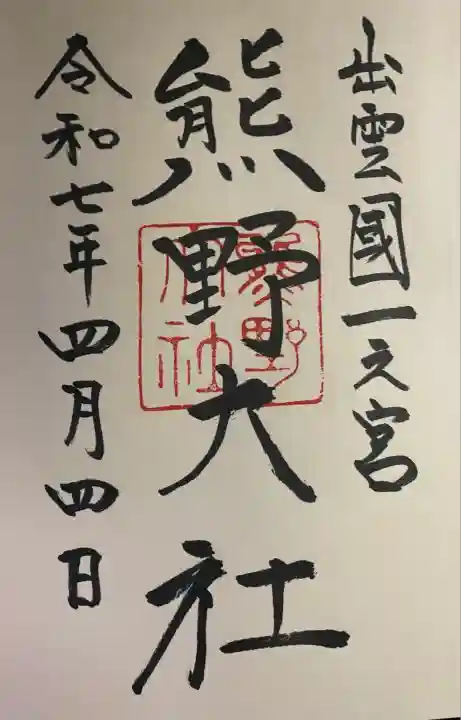 出雲國一之宮
熊野大社
熊野
大社
令和七年四月四日